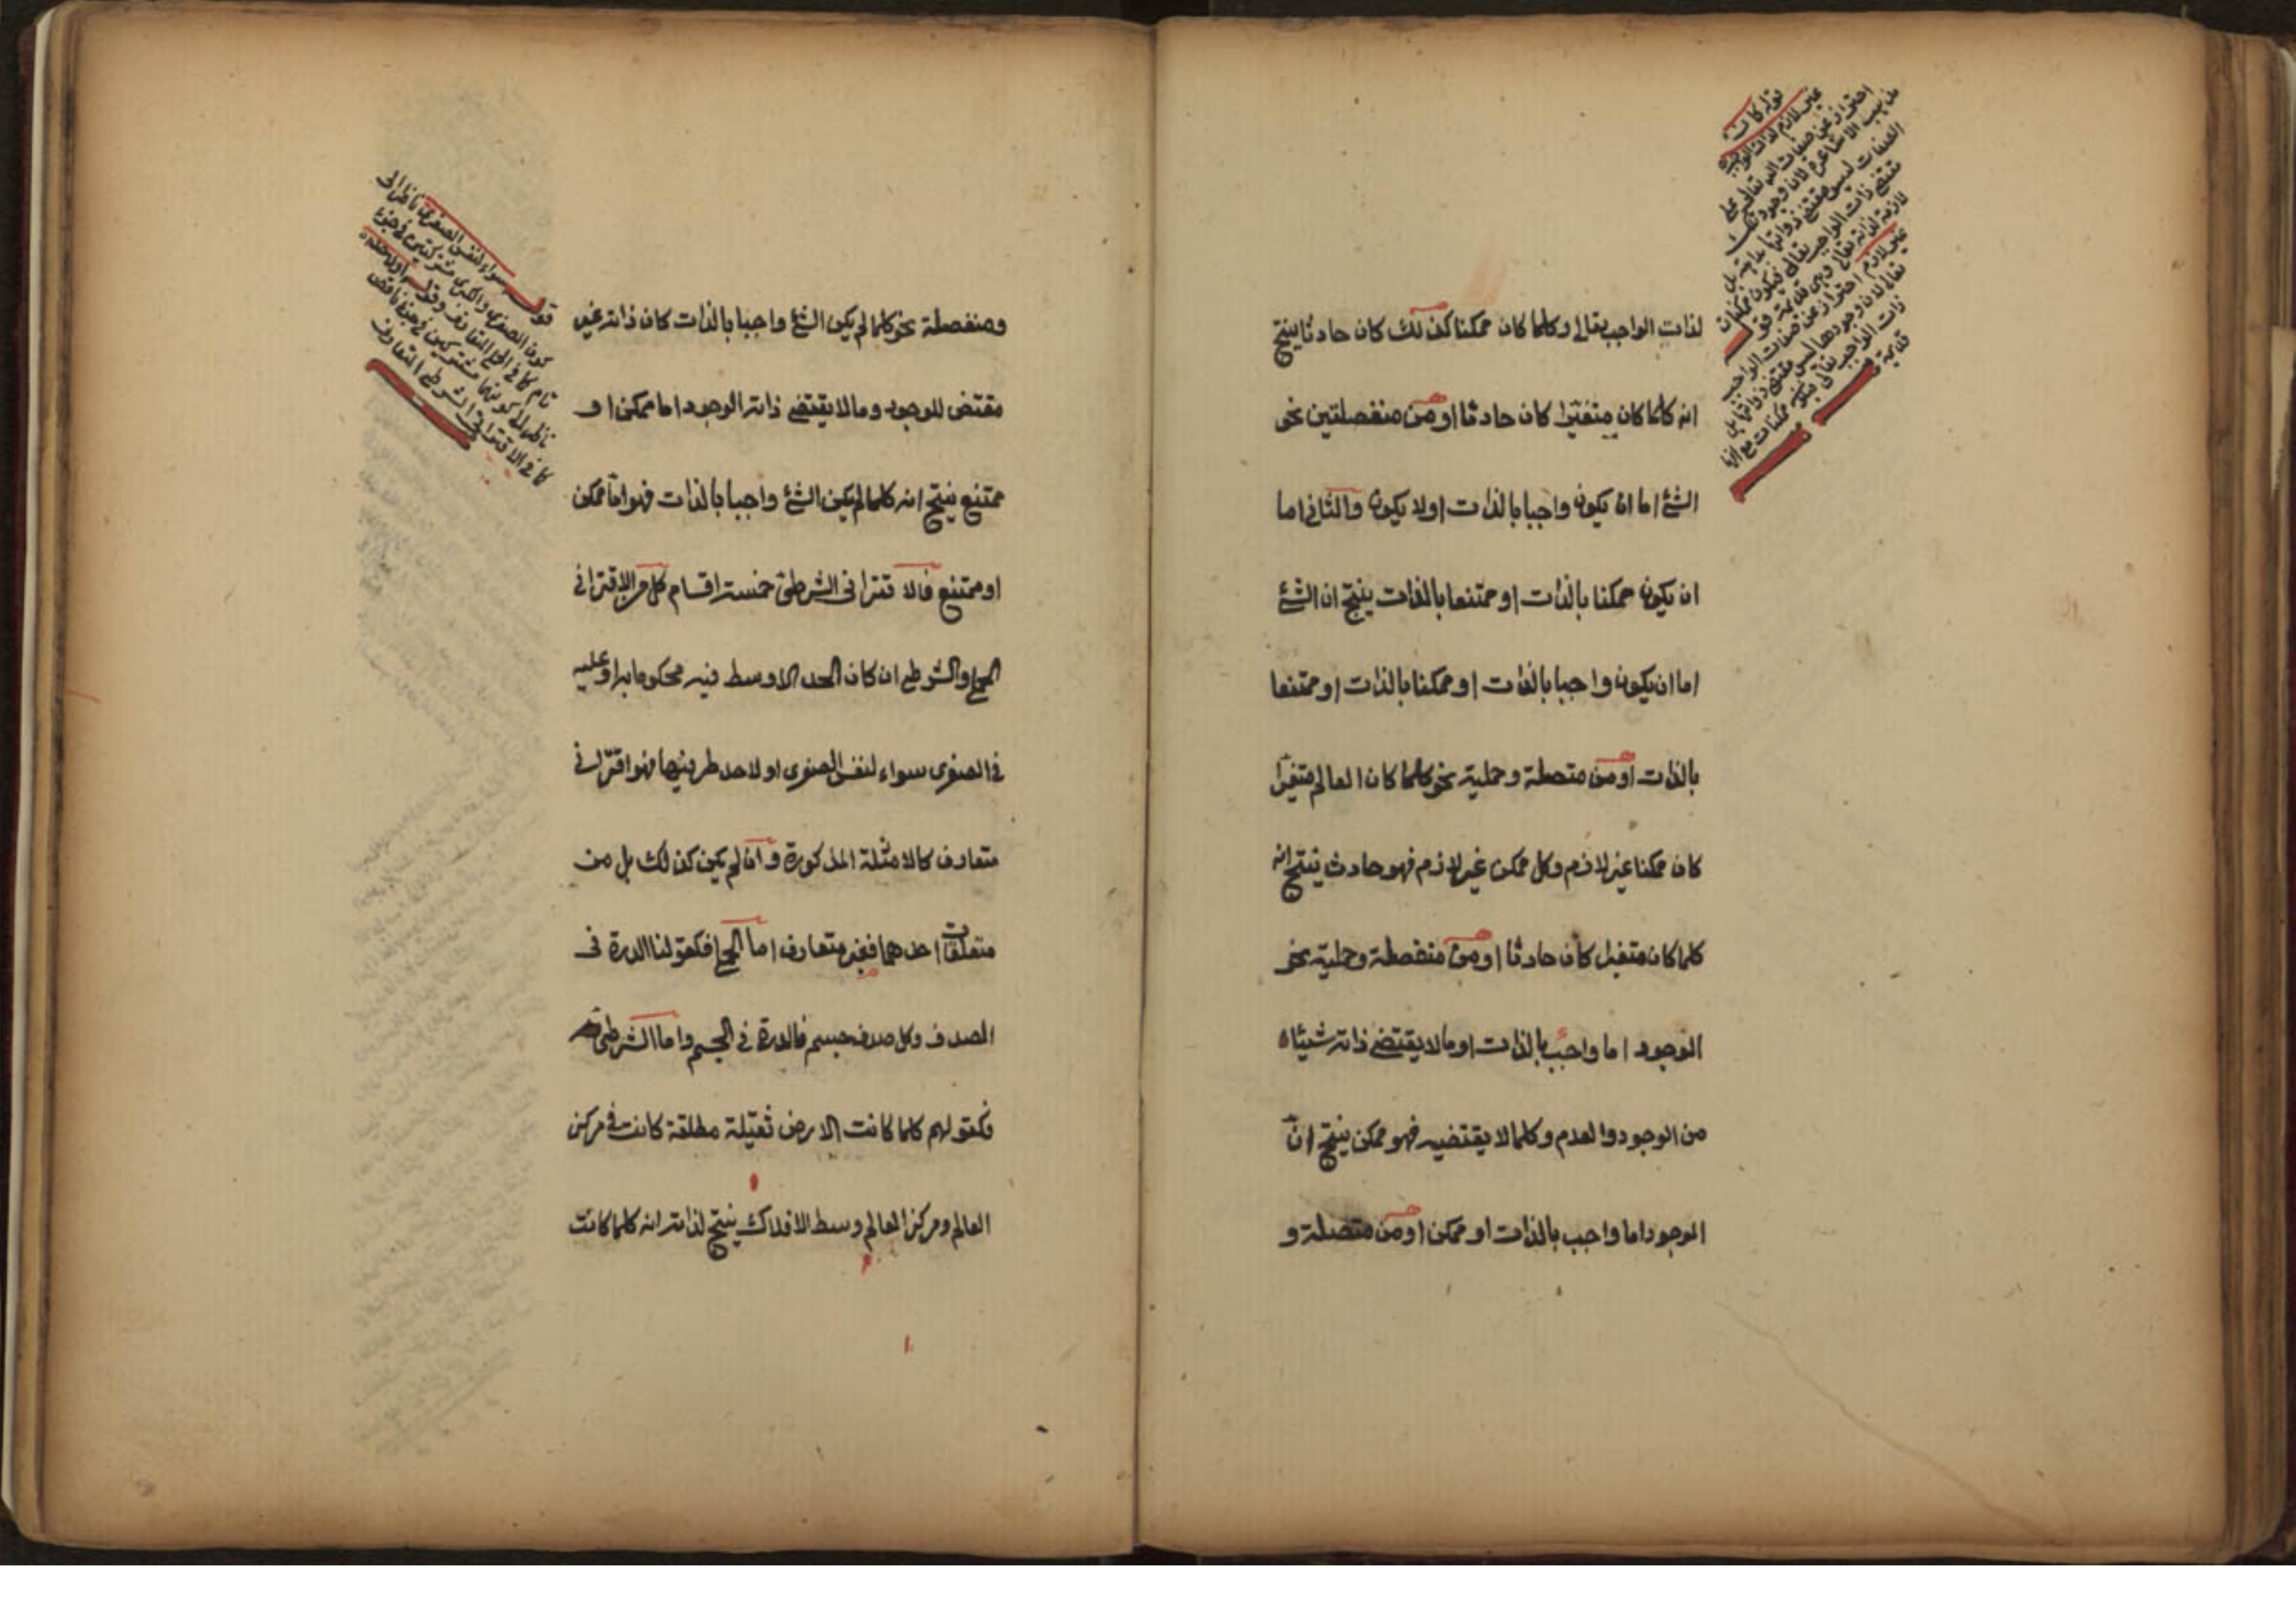 لذات الواجب تعالى وكلما كان ممكنا كذلك كان حادثا ينتج
انه كلما كان متغيرا كان حادثا او من منفصلتين نحو
الشئ اما ان يكون واجبا بالذات اولا يكون والثانى اما
ان يكون ممكنا بالذات او ممتنعا بالذات ينتج ان الشئ
اما ان يكون واجبا بالذات او ممكنا بالذات او ممتنعا
بالذات او من متصلة وحملية نحو كلما كان العالم متغيرا
كان ممكنا غير لازم وكل ممكن غير لازم فهو حادث ينتج انه
كلما كان متغيرا كان حادثا او من منفصلة وحملية نحو
الموجود اما واجب بالذات او مالا يقتضى ذاته شيئا
من الوجود والعدم وكلما لا يقتضيه فهو ممكن ينتج ان
الموجود اما واجب بالذات او ممكن او من متصلة و
قوله كان
غير لازم لذات الواجب
احتراز عن صفات الله تعالى على
مذهب الاشاعرة لان وجود تلك
الصفات ليس مقتضى ذواتها بل
مقتضى ذات الواجب تعالى فيكون ممكنات
لازمة لذاته تعالى وهى قديمة قوله
غير لازم احتراز عن صفات الواجب
تعالى لان وجودها ليس مقتضى ذواتها بل
ذات الواجب تعالى فيكون ممكنات مع انها
قديمة
ومنفصلة نحو كلما لم يكن الشئ واجبا بالذات كان ذاته غير
مقتض للوجود ومالا يقتضى ذاته الوجود اما ممكن او
ممتنع ينتج انه كلما لم يكن الشئ واجبا بالذات فهو اما ممكن
او ممتنع فالاقترانى الشرطى خمسة اقسام كل من الاقترانى
الحملى والشرطى ان كان الحد الاوسط فيه محكوما به او عليه
فى الصغرى سواء لنفس الصغرى او لاحد طرفيها فهو اقترانى
متعارف كالامثلة المذكورة وان لم يكن كذلك بل من
متعلقات احدهما فغير متعارف اما الحملى فكقولنا الدرة فى
الصدف وكل صدف جسم فالدرة فى الجسم واما الشرطى
فكقولهم كلما كانت الارض ثقيلة مطلقة كانت فى مركز
العالم ومركز العالم وسط الافلاك ينتج لذاته انه كلما كانت
قوله سواء لنفس الصغرى ناظر الى
كون الصغرى والكبرى مشتركتين فى جزء
تام كما فى الحملى المتعارف وقوله او لاحد
ناظر الى كونهما مشتركتين فى جزء ناقص
كما فى الاقترانى الشرطى المتعارف